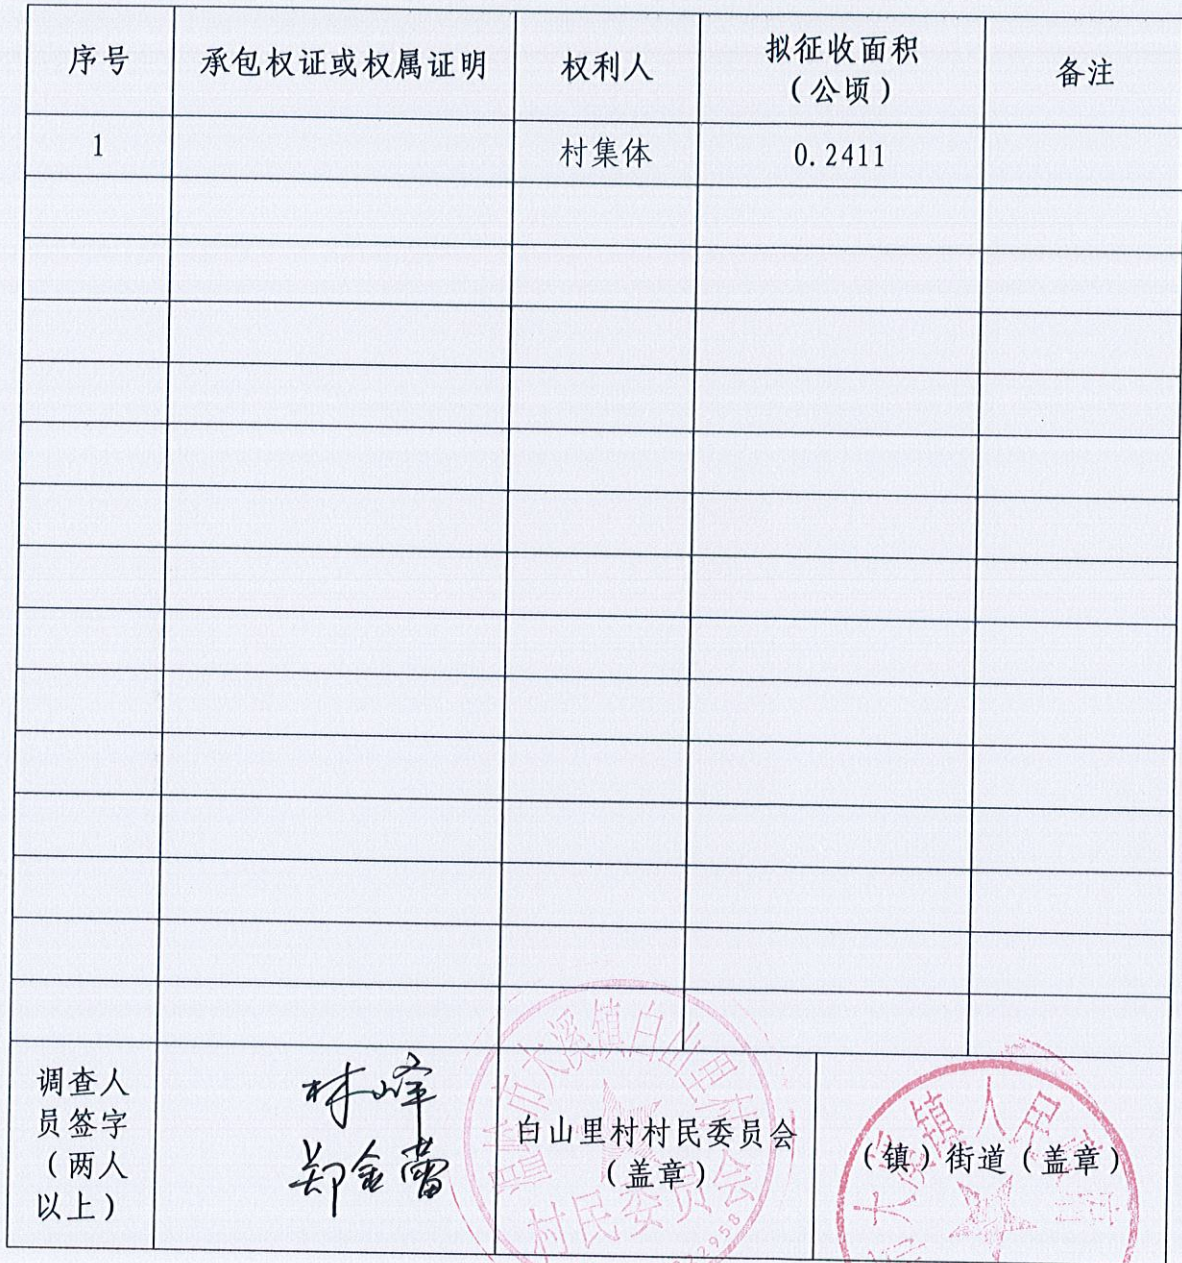 序号 承包权证或权属证明 权利人 拟征收面积 备注
(公顷)
1 村集体 0.2411
调查人
员签字
(两人
以上)
林峰
郑金蕾
白山里村村民委员会
(盖章)
(镇)街道(盖章)
大溪镇白山里村
村民委员会
大溪镇人民